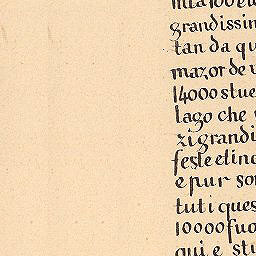 grandissim
tan da qu
mazor de
14000 stue
lago che
zi grandi
feste et inc
e pur so
tuti ques
10000 fuo
qui e stu